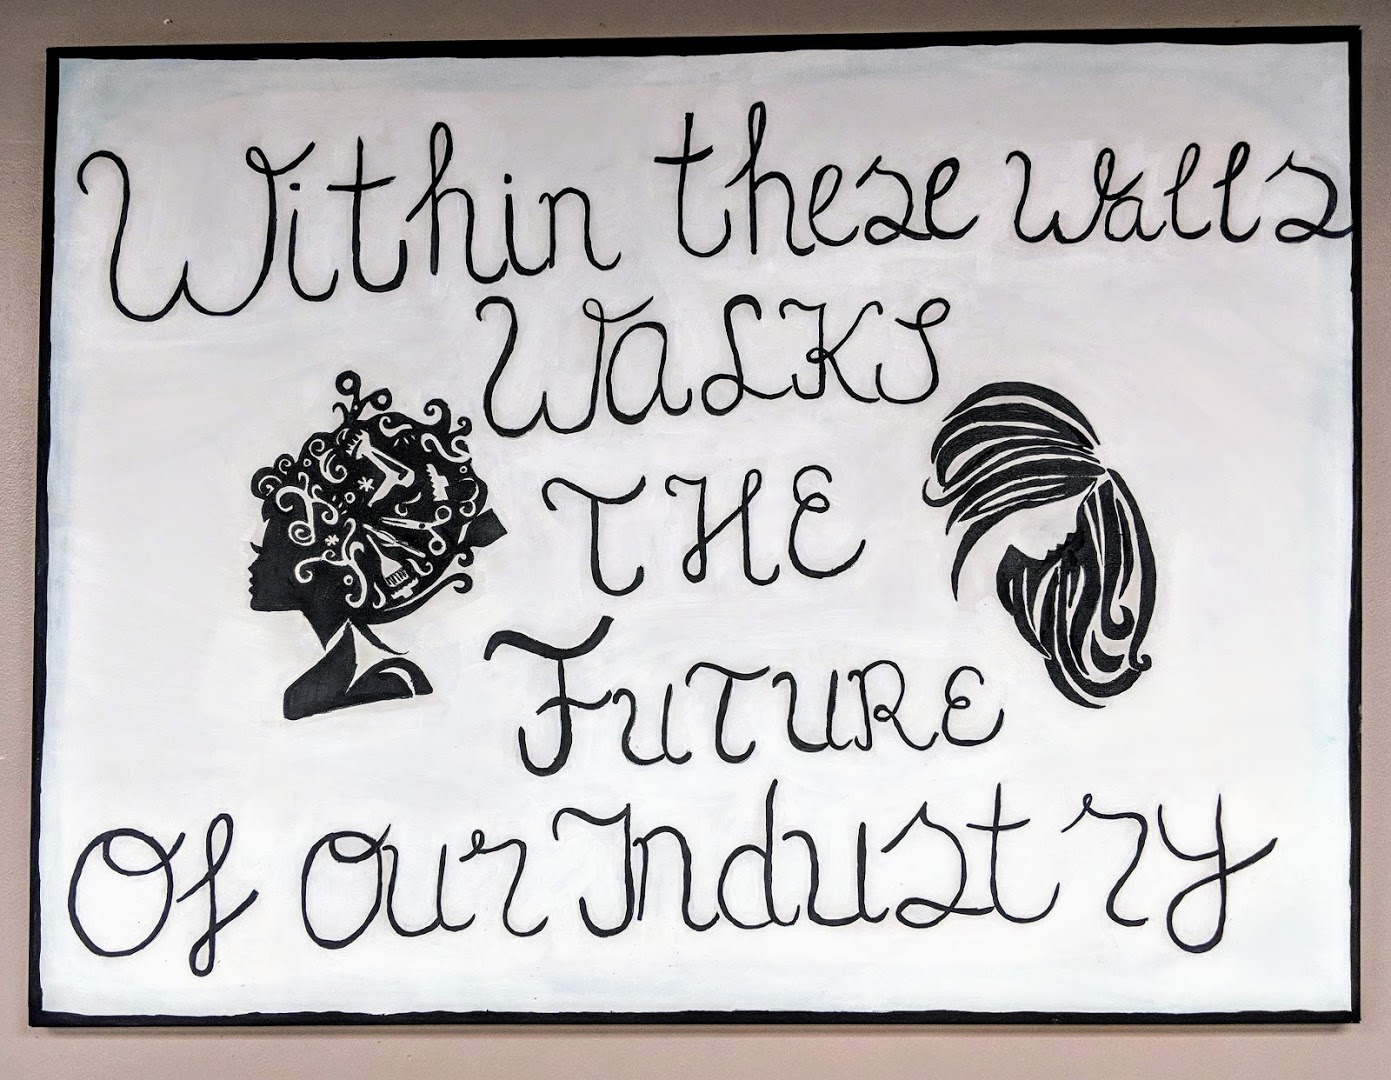 Within these walls
WALKS
THE
FUTURE
Of Our Industry